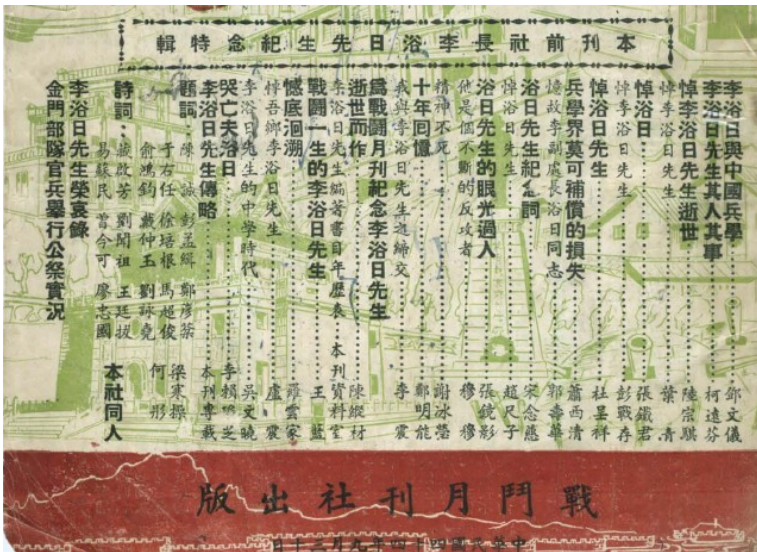 本刊前社長李浴日先生紀念特輯
李浴日與中國兵學……鄧文儀
李浴日先生其人其事……柯遠芬
悼李浴日先生逝世……陸宗騏
悼李浴日先生……葉青
悼浴日……張鐵君
悼李浴日先生……彭戰存
悼浴日先生……杜呈祥
兵學界莫可補償的損失……蕭西清
憶故李副處長浴日同志……郭壽華
浴日先生紀念詞……宋念慈
悼浴日先生……趙尺子
浴日先生的眼光過人……張鏡影
他是個不斷的反攻者……穆穆
精神不死……謝冰瑩
十年回憶……鄭明能
我與李浴日先生締交……李震
爲戰鬪月刊紀念李浴日先生
逝世而作……陳縱材
李浴日先生編著書目年歷表…本刊資料室
戰鬪一生的李浴日先生……王藍
憾底洄溯……羅雲家
悼吾鄉李浴日先生……盧震
李浴日先生的中學時代……吳文曉
哭亡夫浴日……李賴芝
李浴日先生傳略……本刊專載
題詞：陳誠 彭孟緝 鄭彥棻 梁寒操
于右任 徐培根 馬超俊 何彤
俞鴻鈞 戴仲玉 劉詠堯
詩詞：啟芳 劉聞祖 王廷拔 本社同人
易蘇民 曾今可 廖志國
李浴日先生榮哀錄
金門部隊官兵舉行公祭實況
戰鬥月刊社出版
中華民國四十四年九月三十日